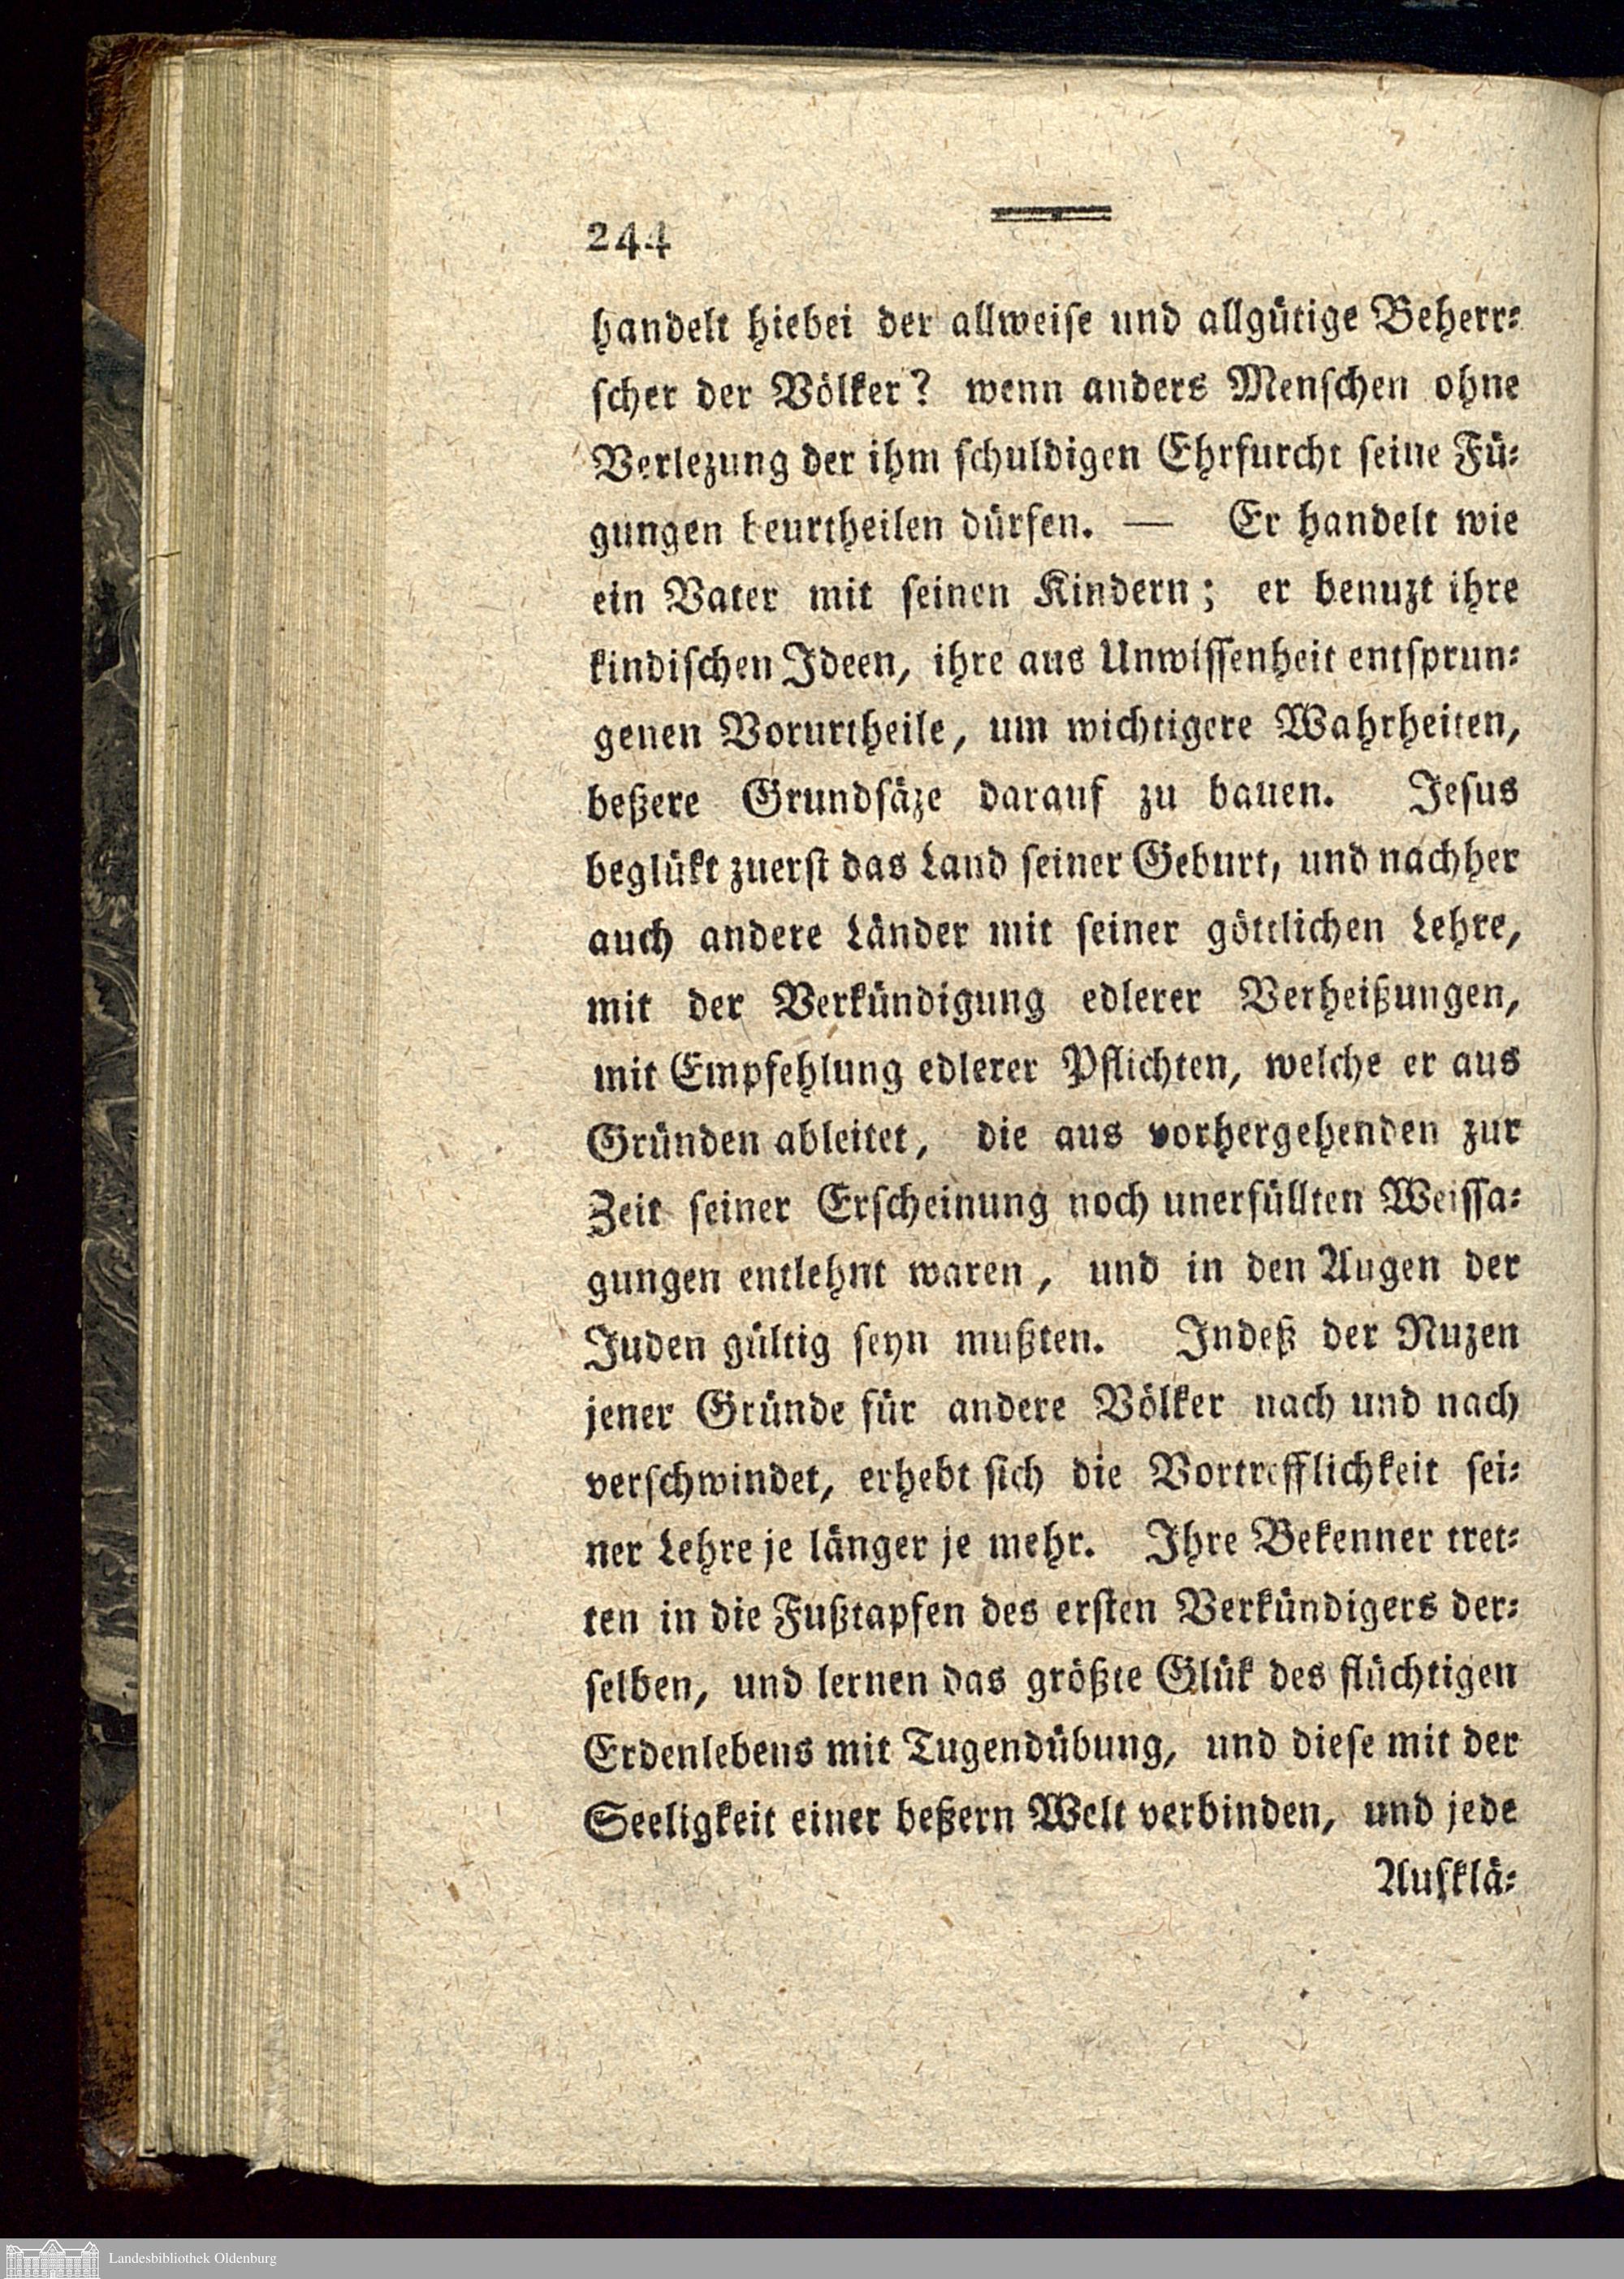 244
handelt hiebei der allweise und allgütige Beherr-
scher der Völker? wenn anders Menschen ohne
Verlezung der ihm schuldigen Ehrfurcht seine Fü-
gungen beurtheilen dürfen. — Er handelt wie
ein Vater mit seinen Kindern; er benuzt ihre
kindischen Ideen, ihre aus Unwissenheit entsprun-
genen Vorurtheile, um wichtigere Wahrheiten,
beßere Grundsäze darauf zu bauen. Jesus
beglükt zuerst das Land seiner Geburt, und nachher
auch andere Länder mit seiner göttlichen Lehre,
mit der Verkündigung edlerer Verheißungen,
mit Empfehlung edlerer Pflichten, welche er aus
Gründen ableitet, die aus vorhergehenden zur
Zeit seiner Erscheinung noch unerfüllten Weissa-
gungen entlehnt waren, und in den Augen der
Juden gültig seyn mußten. Indeß der Nuzen
jener Gründe für andere Völker nach und nach
verschwindet, erhebt sich die Vortrefflichkeit sei-
ner Lehre je länger je mehr. Ihre Bekenner tret-
ten in die Fußtapfen des ersten Verkündigers der-
selben, und lernen das größte Glük des flüchtigen
Erdenlebens mit Tugendübung, und diese mit der
Seeligkeit einer beßern Welt verbinden, und jede
Aufklä-
Landesbibliothek Oldenburg